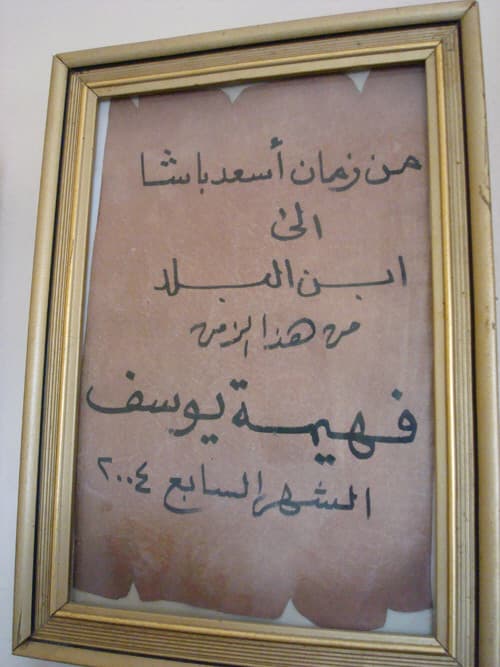 من زمان أسعد باشا
الى
ابن البلد
من هذا الزمن
فهيمة يوسف
الشهر السابع ٢٠٠٤